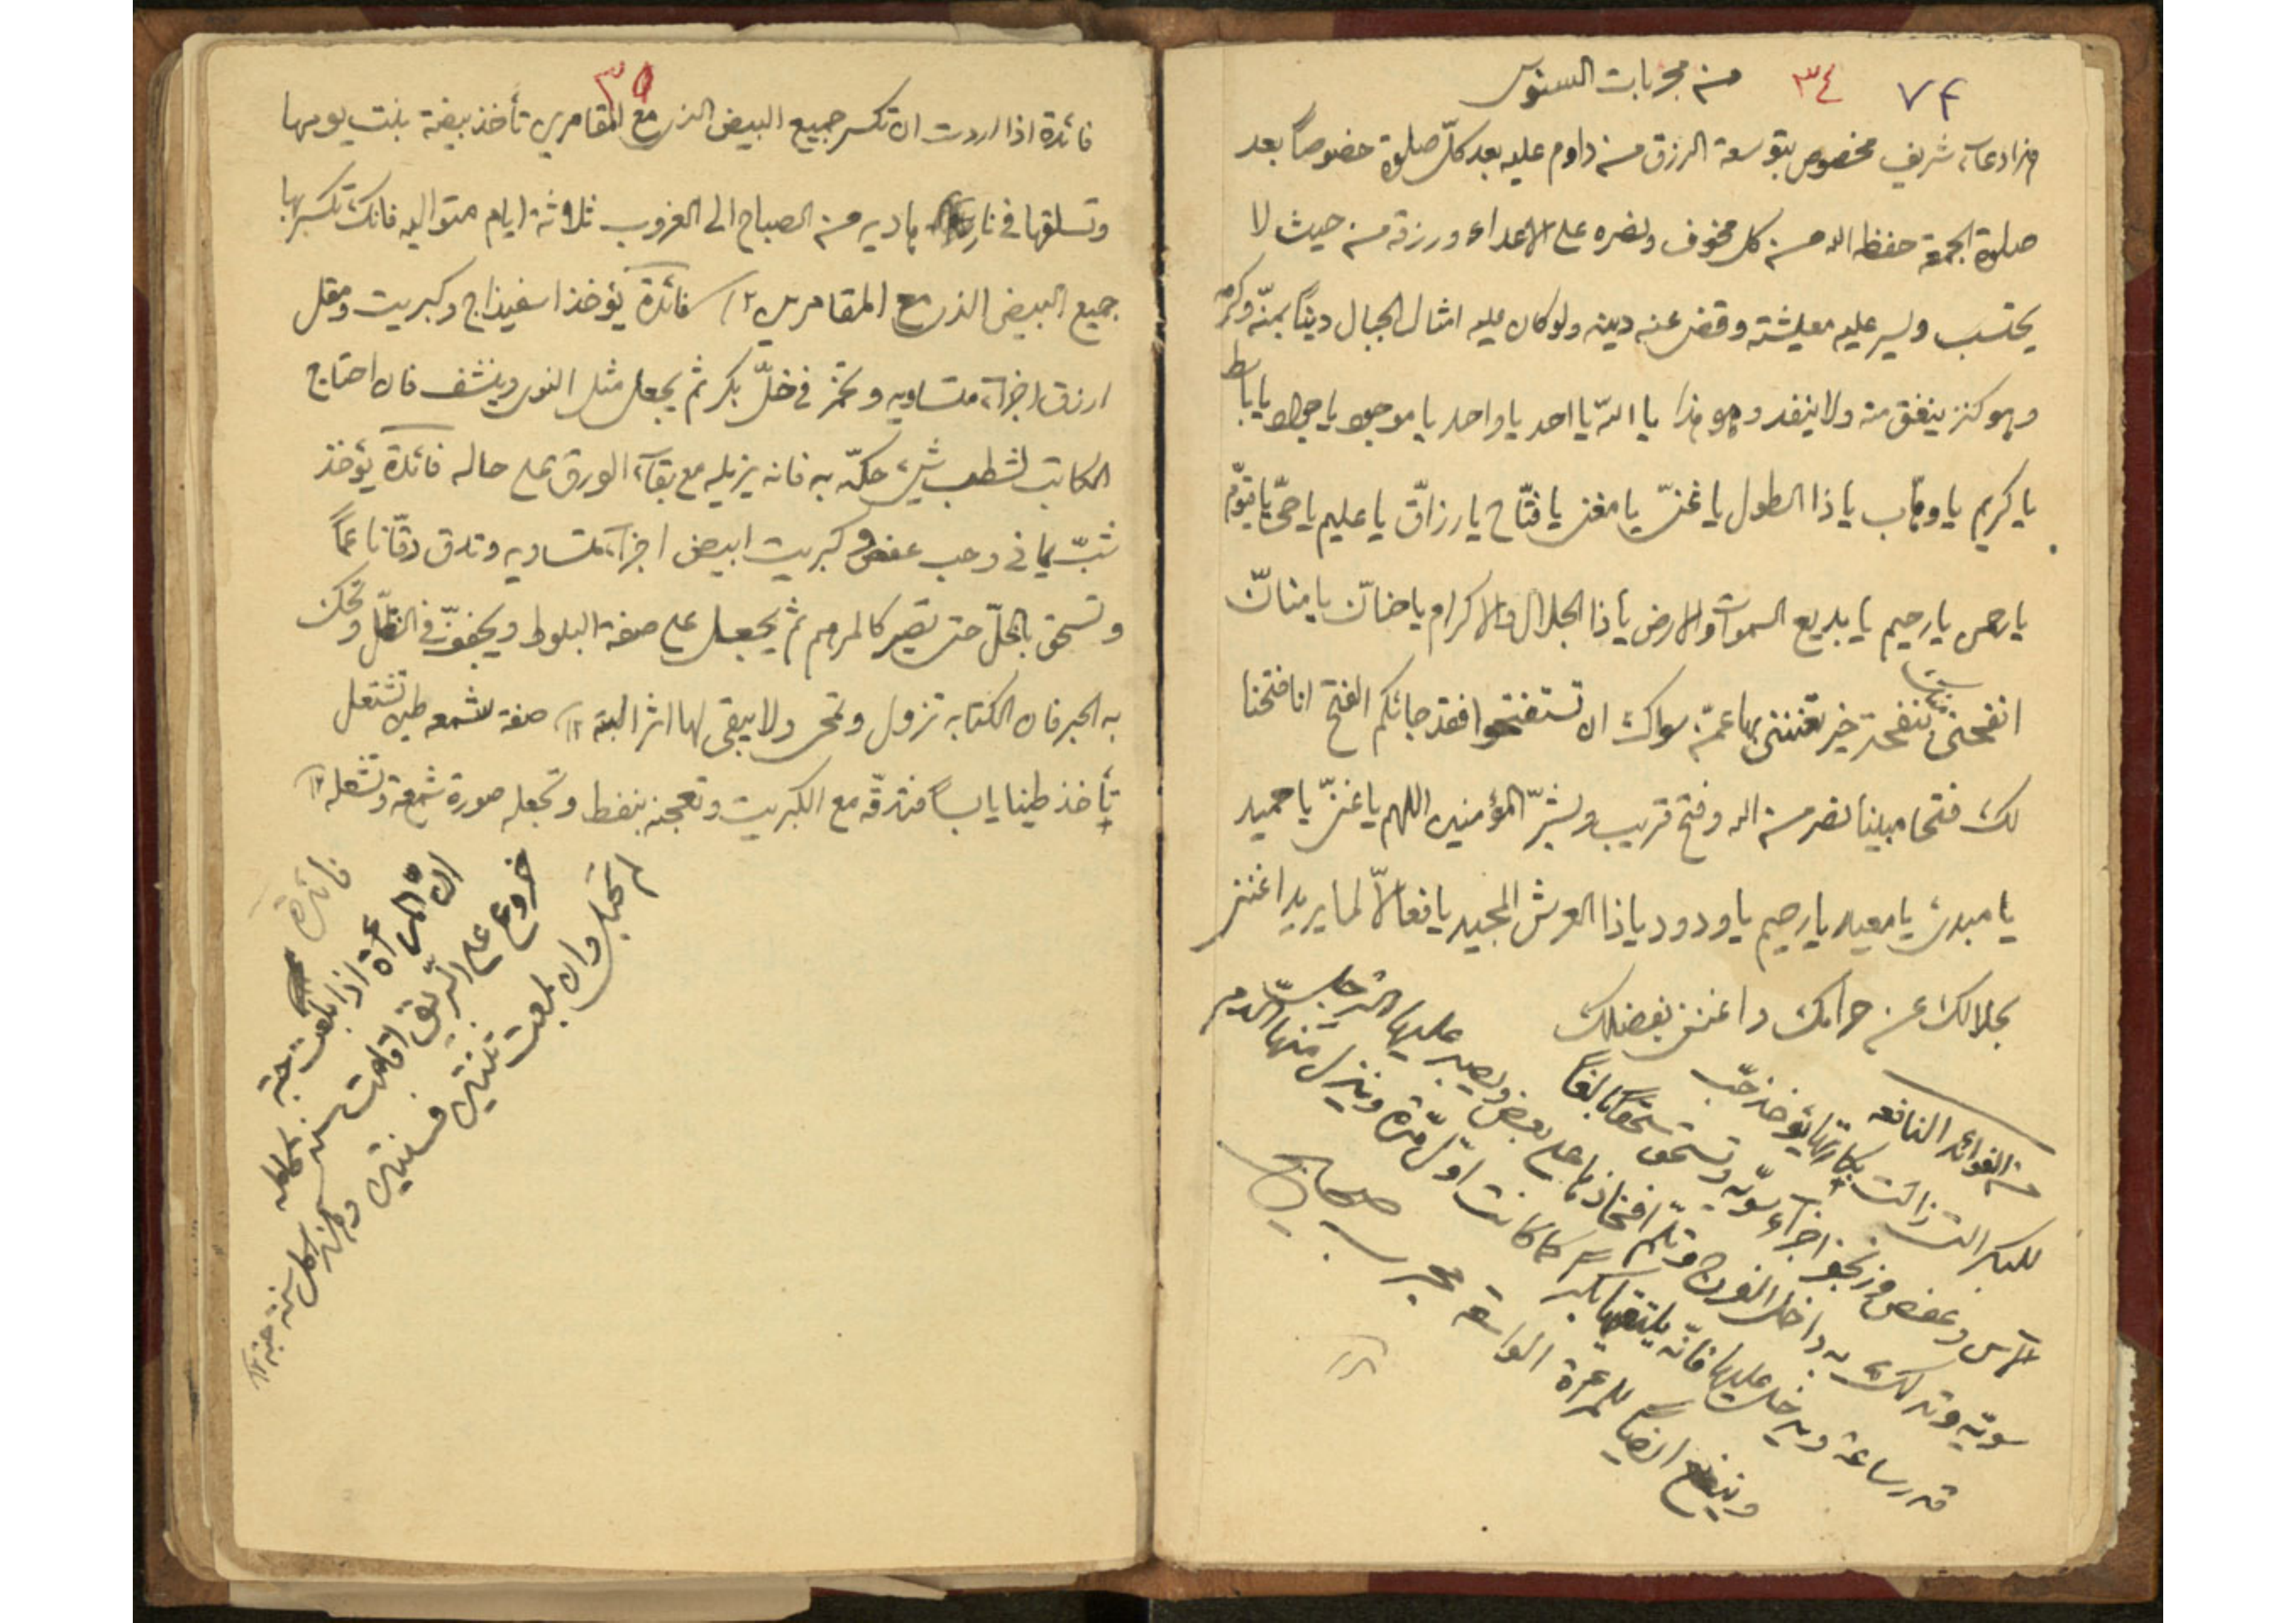 من مجربات السنوسي ٣٤ ٧٤
هذا دعاء شريف مخصوص بتوسعة الرزق من داوم عليه بعد كلّ صلوة خصوصاً بعد
صلوة الجمعة حفظه الله من كل مخوف ونصره على الاعداء ورزقه من حيث لا
يحتسب ويسر عليه معيشته وقضى عنه دينه ولو كان عليه امثال الجبال ديناً بمنّه وكرمه
وهو كنز ينفق منه ولا ينفد وهو هذا يا الله يا احد يا واحد يا موجود يا جواد يا باسط
يا كريم يا وهّاب يا ذا الطول يا غنيّ يا مغني يا فتّاح يا رزاّق يا عليم يا حيّ يا قيّوم
يا رحمن يا رحيم يا بديع السموات والارض يا ذا الجلال والاكرام يا حناّن يا منانّ
انفحني منك بنفحة خير تغنني بها عمّن سواك ان تستفتحوا فقد جائكم الفتح انا فتحنا
لك فتحا مبينا نصر من الله وفتح قريب وبشّر المؤمنين اللهم يا غنيّ يا حميد
يا مبدئ يا معيد يا رحيم يا ودود يا ذا العرش المجيد يا فعالاّ لما يريد اغنني
بحلالك عن حرامك واغنني بفضلك
من الفوائد النافعه
للبكر التي زالت بكارتها يؤخذ حبّ
الآس وعفص وزنجفر اجزآء سويّه وتسحق سحقاً بالغاً
سويّه وتدلك به داخل الفرج وتلمّ افخاذها على بعض ويصبر عليها الرجل
قدر ساعة ويدخل عليها فانّه يلتقيها بكر كما كانت اوّل مرّة وينزل منها الدم
وينفع ايضاً للمرءة الواسعة مجرب صحاح
٣٥
فائدة اذا اردت ان تكسر جميع البيض الذي مع المقامري تأخذ بيضة بنت يومها
وتسلقها في نار هاديه من الصباح الى الغروب ثلاثة ايام متواليه فانك تكسر بها
جميع البيض الذي مع المقامرين ١٢ فائدة يؤخذ اسفيذاج وكبريت ومقل
ازرق اجزآء متساويه وتخمّر في خلّ بكر ثم يجعل مثل النوى وينشف فان احتاج
الكاتب لشطب شيء حكّه به فانه يزيله مع بقآء الورق على حاله فائدة يؤخذ
شبّ يماني وحب عفص وكبريت ابيض اجزآء متساويه وتدق دقّا ناعماً
وتسحق بالخلّ حتى تصير كالمرهم ثم يجعل على صفة البلوط ويجفّف في الظلّ وتحك
به الحبر فان الكتابه تزول وتمحى ولا يبقى لها اثر البته ١٢ صفة شمعه طين تشتعل
تأخذ طينا يابساً فتدقّه مع الكبريت وتعجنه بنفط وتجعله صورة شمعة وتشعله ١٢
فائدة
انّ المرءة اذا بلعت حبة كامله
خروع على الرّيق اقامت سنه
لم تحبل وان بلعت ثنتين فسنتين وهكذا كل سنة حبة ١٢